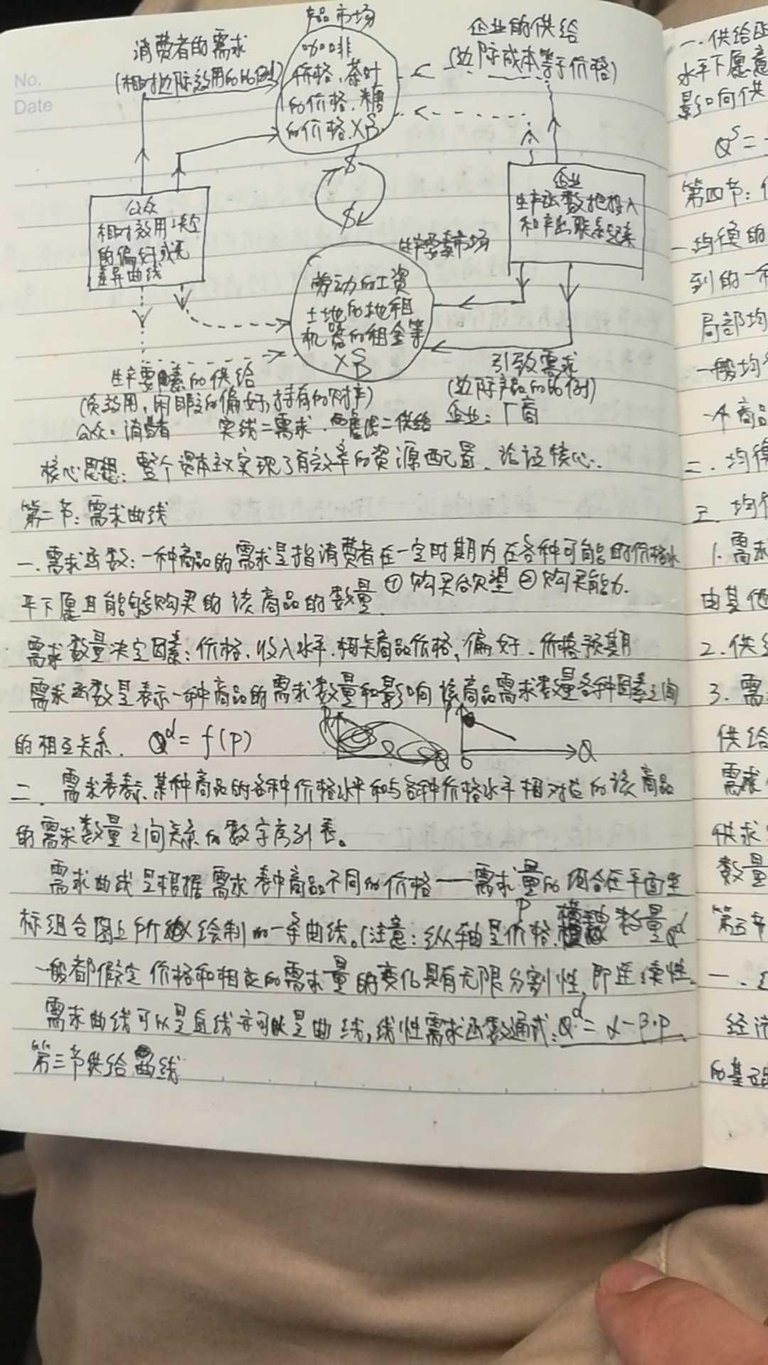 No.
Date
产品市场
消费者的需求
(相对边际效用的比例)
企业的供给
(边际成本等于价格)
咖啡
价格,茶叶
的价格,糖
的价格 X S D
$
$
公众
相对效用决定
的偏好或无
差异曲线
企业
生产函数把投入
和产出联系起来
生产要素市场
劳动的工资
土地的地租
机器的租金等
X S D
生产要素的供给
(负效用,闲暇的偏好,持有的财产)
引致需求
(边际产品的比例)
公众:消费者 实线=需求 虚线=供给 企业:厂商
核心思想:整个资本主义实现了有效率的资源配置、论证核心.
第二节:需求曲线
一.需求函数:一种商品的需求是指消费者在一定时期内在各种可能的价格水
平下愿且能够购买的该商品的数量. ①购买欲望 ②购买能力.
需求数量决定因素:价格、收入水平、相关商品价格、偏好、价格预期
需求函数是表示一种商品的需求数量和影响该商品需求数量各种因素之间
的相互关系. Qᵈ=f(P)
P
O
Q
二. 需求表表示某种商品的各种价格水平和与各种价格水平相对应的该商品
的需求数量之间关系的数字序列表。
需求曲线是根据需求表中商品不同的价格——需求量的组合在平面坐
标组合图上所绘制的一条曲线。(注意:纵轴是价格P 数量Qᵈ
一般都假定价格和相应的需求量的变化具有无限分割性,即连续性.
需求曲线可以是直线亦可以是曲线,线性需求函数通式:Qᵈ=α-β·P
第三节供给曲线
一.供给函
水平下愿意
影响供
Qˢ=
第四节:
一均衡的
到的一
局部均
一般均衡
一个商品
二.均衡
三.均
1.需求
由其他
2.供给
3.需
供给
需求
供求
数量
第五节
一.
经济
的基